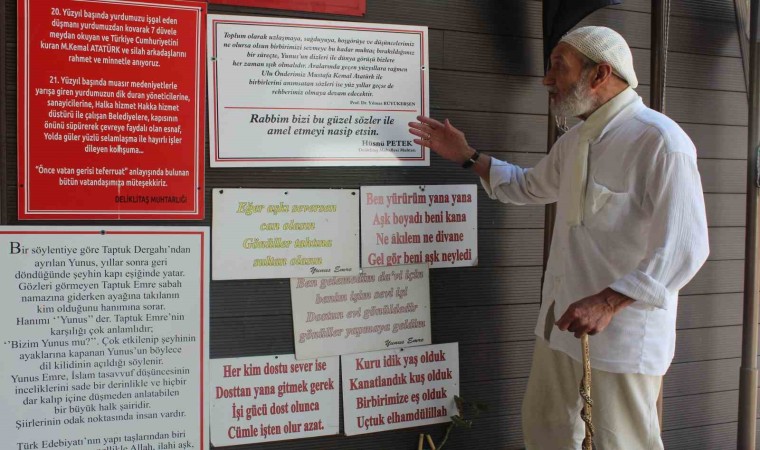 20. Yüzyıl başında yurdumuzu işgal eden
düşmanı yurdumuzdan kovarak 7 düvele
meydan okuyan ve Türkiye Cumhuriyetini
kuran M.Kemal ATATÜRK ve silah arkadaşlarını
rahmet ve minnetle anıyoruz.
21. Yüzyıl başında muasır medeniyetlerle
yarışa giren yurdumuzun dik duran yöneticilerine,
sanayicilerine, Halka hizmet Hakka hizmet
düstürü ile çalışan Belediyelere, kapısının
önünü süpürerek çevreye faydalı olan esnaf,
Yolda güler yüzlü selamlaşma ile hayırlı işler
dileyen komşuma...
"Önce vatan gerisi teferruat" anlayışında bulunan
bütün vatandaşımıza müteşekkiriz.
DELİKLİTAŞ MUHTARLIĞI
Toplum olarak uzlaşmaya, sağduyuya, hoşgörüye ve düşüncelerimiz
ne olursa olsun birbirimizi sevmeye bu kadar muhtaç bırakıldığımız
bir süreçte, Yunus'un dizleri ile dünya görüşü bizlere
her zaman ışık olmalıdır. Aralarında geçen yüzyıllara rağmen
Ulu Önderimiz Mustafa Kemal Atatürk ile
birbirlerini anımsatan sözleri ise yüz yıllar geçse de
rehberimiz olmaya devam edecektir.
Prof. Dr. Yılmaz BÜYÜKERŞEN
Rabbim bizi bu güzel sözler ile
amel etmeyi nasip etsin.
Hüsnü PEKET
Deliklitaş Mahallesi Muhtarı
Eğer aşkı seversen
can olasın
Gönüller tahtına
sultan olasın
Yunus Emre
Ben yürürüm yana yana
Aşk boyadı beni kana
Ne âkılem ne divane
Gel gör beni aşk neyledi
Ben gelmedim da'vi için
benim işim sevi için
Dostun evi gönüldedir
gönüller yapmaya geldim
Yunus Emre
Her kim dosttan yana ise
Dosttan yana gitmek gerek
İşi gücü dost olunca
Cümle işten olur azat.
Kuru idik yaş olduk
Kanatlandık kuş olduk
Birbirimize eş olduk
Uçtuk elhamdülillah
Bir söylentiye göre Taptuk Dergahı'ndan
ayrılan Yunus, yıllar sonra geri
döndüğünde şeyhin kapı eşiğinde yatar.
Gözleri görmeyen Taptuk Emre sabah
namazına giderken ayağına takılanın
kim olduğunu hanımına sorar.
Hanımı: ''Yunus'' der. Taptuk Emre'nin
karşılığı çok anlamlıdır;
''Bizim Yunus mu?''. Çok etkilenip şeyhinin
ayaklarına kapanan Yunus'un böylece
dil kilidinin açıldığı söylenir.
Yunus Emre, İslam tasavvuf düşüncesinin
inceliklerini sade bir derinlikle ve hiçbir
dar kalıp içine düşmeden anlatabilen
bir büyük halk şairidir.
Şiirlerinin odak noktasında insan vardır.
Türk Edebiyatı'nın yapı taşlarından biri
Allah, ilahi aşk,